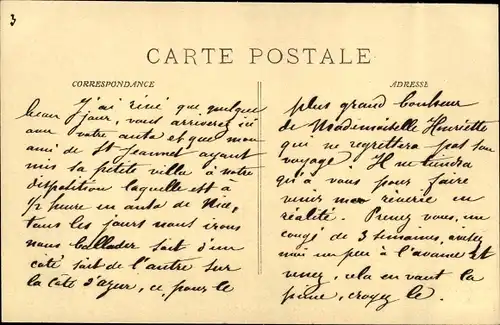 3
CARTE POSTALE
CORRESPONDANCE
J'ai rêvé que quelque
beau jour, vous arriverez ici
avec votre auto et que mon
ami de St-Jeannet ayant
mis sa petite ville à notre
disposition laquelle est à
1/2 heure en auto de Nice,
tous les jours nous irons
nous ballader soit d'un
côté soit de l'autre sur
la côte d'azur, ce, pour le
ADRESSE
plus grand bonheur
de Mademoiselle Henriette
qui ne regrettera pas son
voyage! Il ne tiendra
qu'à vous pour faire
venir mon rêverie en
réalité. Prenez vous, un
congé de 3 semaines, avisez
moi un peu à l'avance et
venez, cela en vaut la
peine, croyez le.